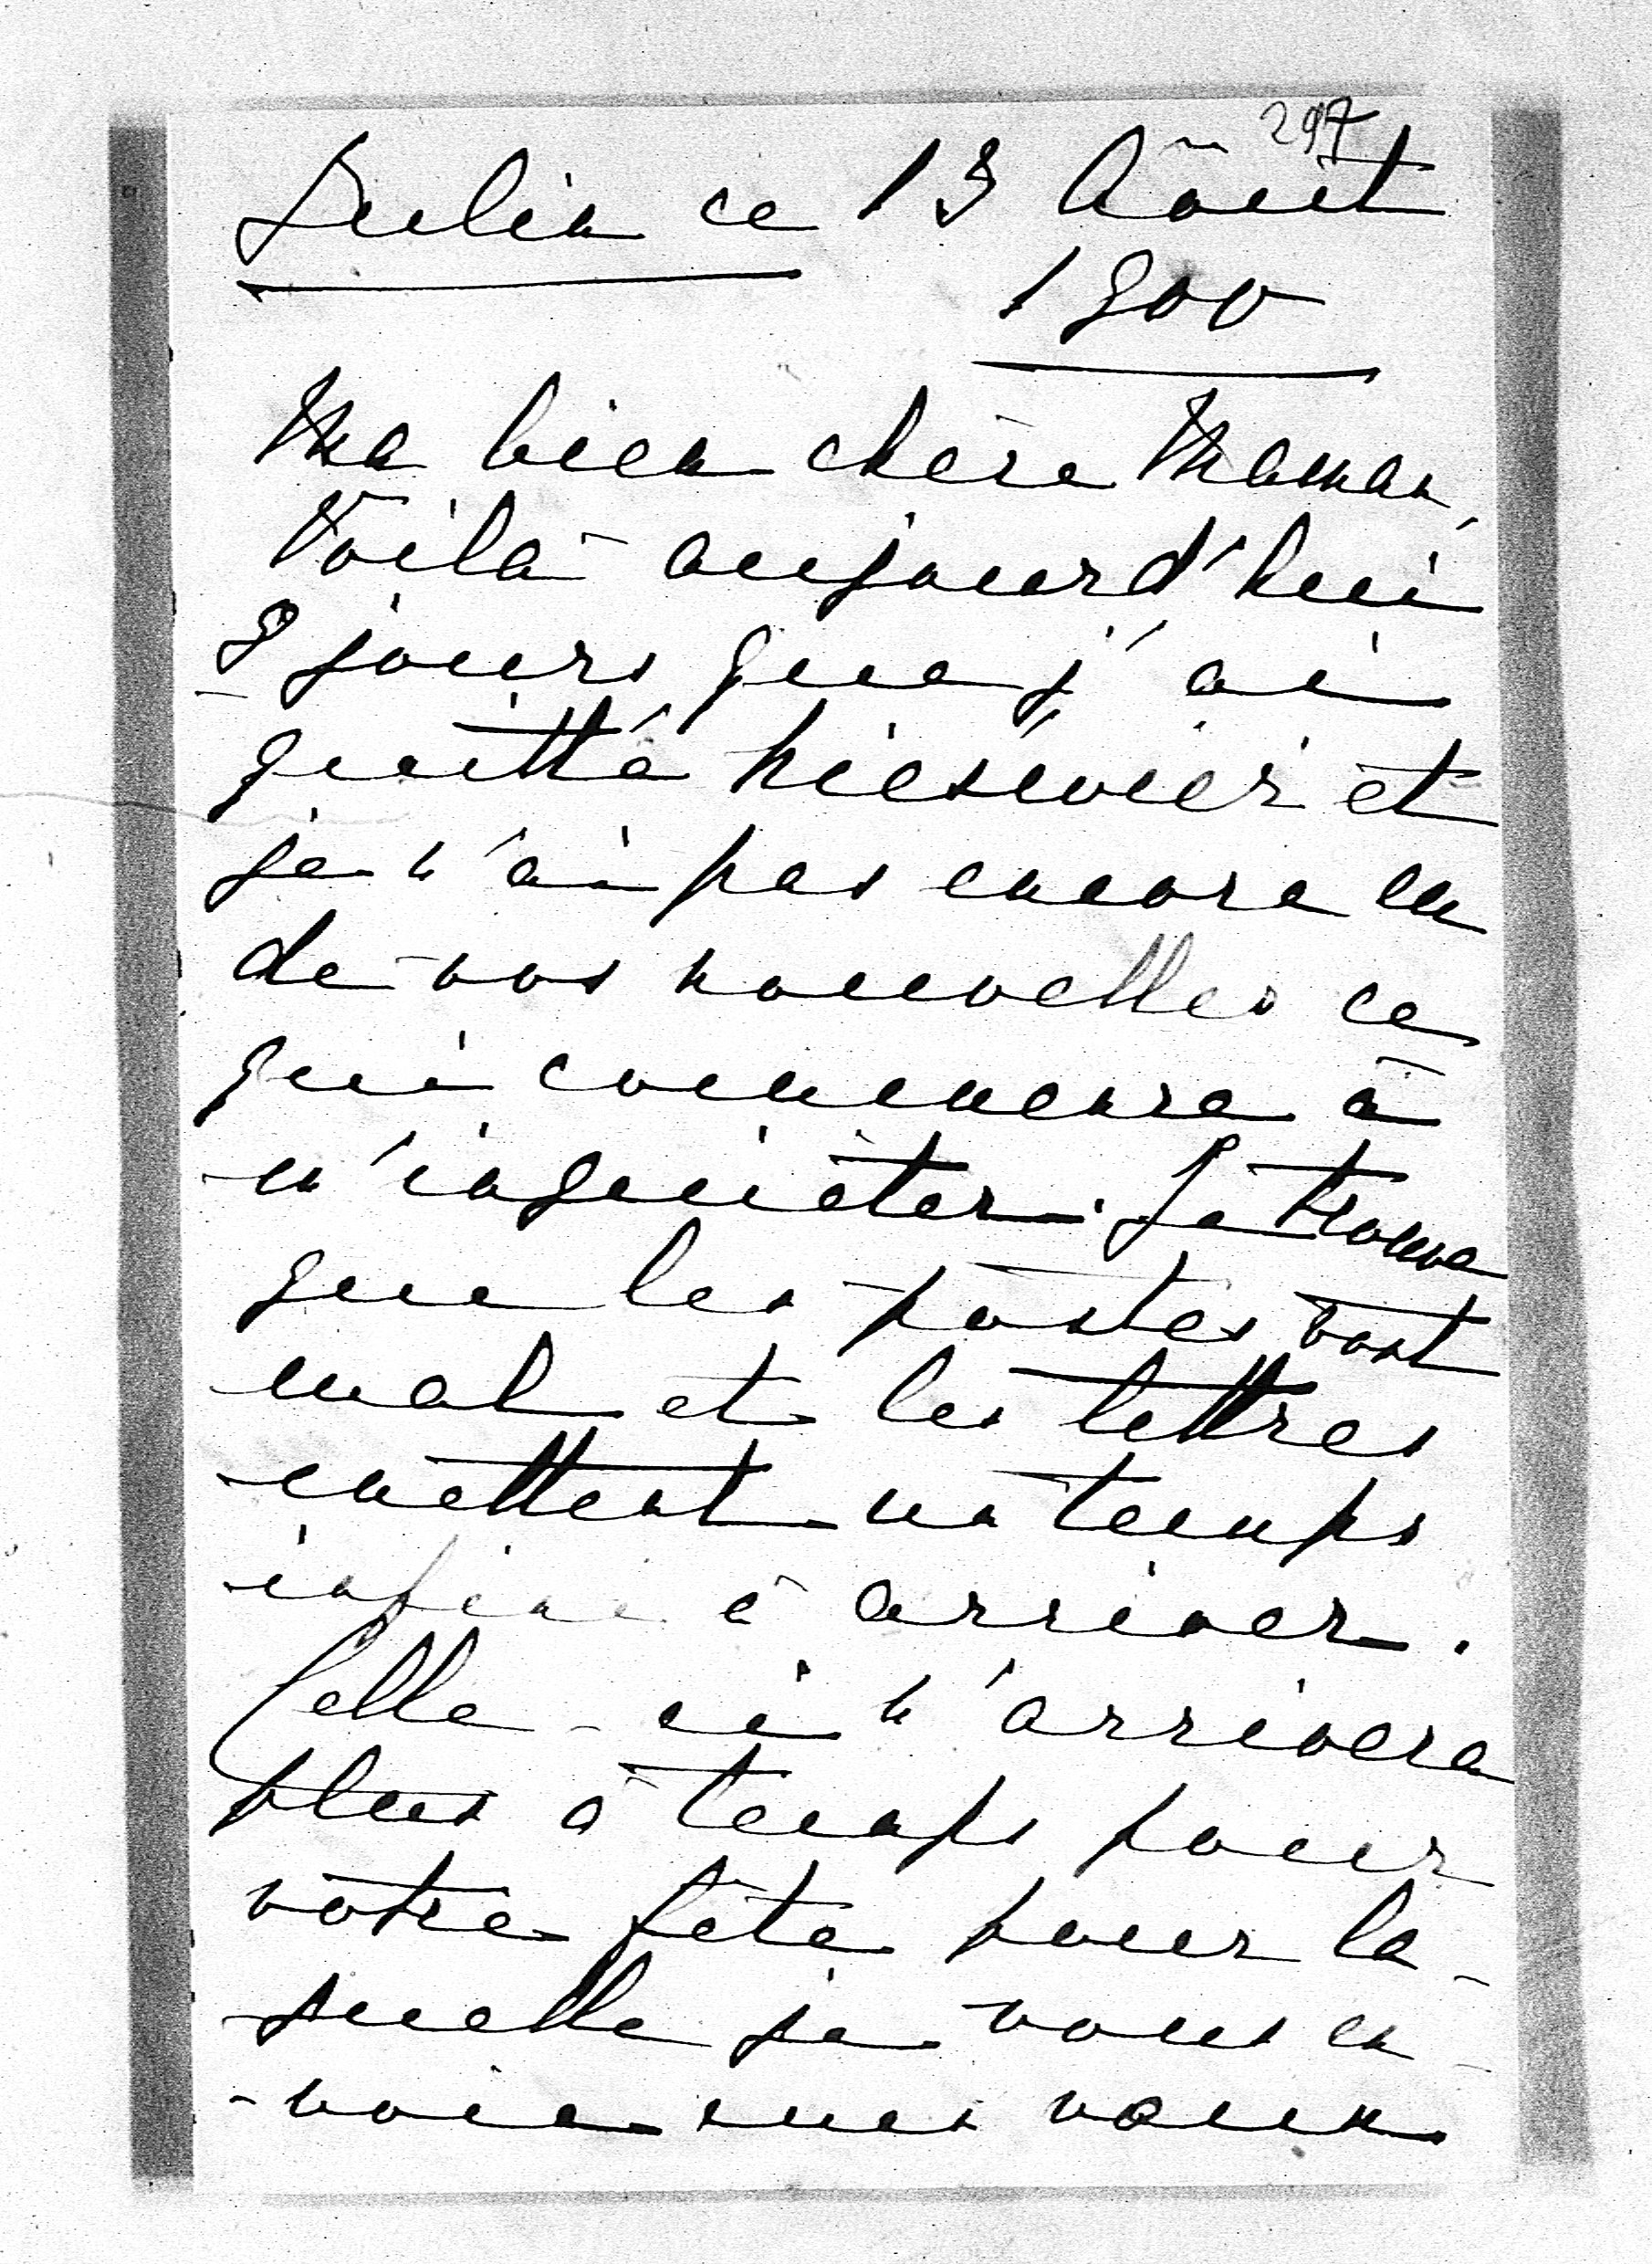 297
Julin ce 13 Août
1900
Ma bien chère Maman,
Voilà aujourd'hui
8 jours que j'ai
quitté et
je n'ai pas encore eu
de vos nouvelles ce
qui commence à
m'inquiéter. Je trouve
que les postes vont
mal et les lettres
mettent un temps
infini à arriver.
Celle-ci n'arrivera
plus à temps pour
votre fête pour la-
quelle je vous en-
-voie mes vœux